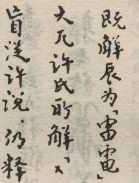 既解辰为「雷電
大凡许氏所解，
盲從许说，仍释